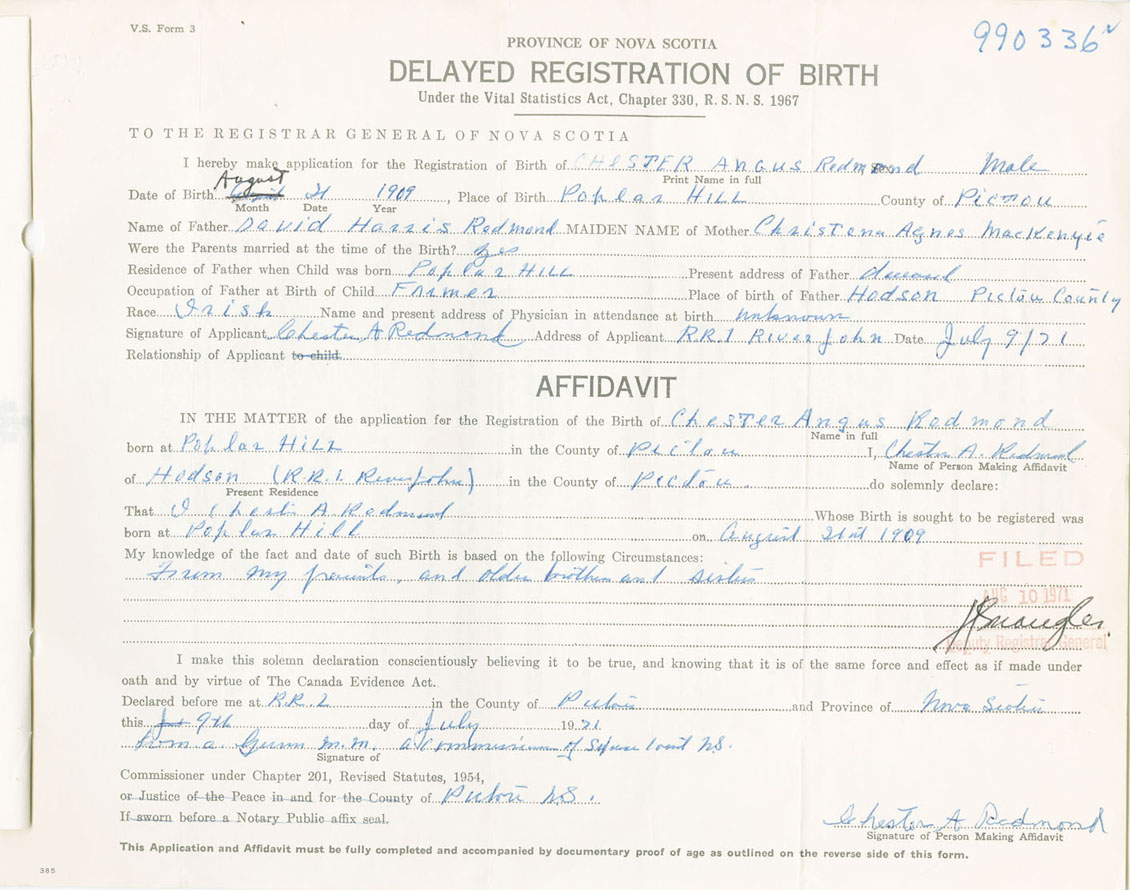 V.S. Form 3
990336
PROVINCE OF NOVA SCOTIA
DELAYED REGISTRATION OF BIRTH
Under the Vital Statistics Act, Chapter 330, R. S. N. S. 1967
TO THE REGISTRAR GENERAL OF NOVA SCOTIA
I hereby make application for the Registration of Birth of CHESTER Angus Redmond Male
Print Name in full
August
Date of Birth 21 1909, Place of Birth Poplar Hill County of Pictou
Month Date Year
Name of Father David Harris Redmond MAIDEN NAME of Mother Christena Agnes MacKenzie
Were the Parents married at the time of the Birth? yes
Residence of Father when Child was born Poplar Hill Present address of Father deceased
Occupation of Father at Birth of Child Farmer Place of birth of Father Hodson Pictou County
Race Irish Name and present address of Physician in attendance at birth unknown
Signature of Applicant Chester A Redmond Address of Applicant R.R.1 River John Date July 9/71
Relationship of Applicant to child
AFFIDAVIT
IN THE MATTER of the application for the Registration of the Birth of Chester Angus Redmond
Name in full
born at Poplar Hill in the County of Pictou I, Chester A. Redmond
Name of Person Making Affidavit
of Hodson (R.R.1. River John) in the County of Pictou. do solemnly declare:
Present Residence
That I Chester A Redmond Whose Birth is sought to be registered was
born at Poplar Hill on August 21st 1909
My knowledge of the fact and date of such Birth is based on the following Circumstances:
From my parents, and older brothers and sisters
FILED
AUG 10 1971
Deputy Registrar General
I make this solemn declaration conscientiously believing it to be true, and knowing that it is of the same force and effect as if made under
oath and by virtue of The Canada Evidence Act.
Declared before me at R.R.2 in the County of Pictou and Province of Nova Scotia
this 9th day of July 1971
Gunn M.M. a Commissioner of Supreme Court N.S.
Signature of
Commissioner under Chapter 201, Revised Statutes, 1954,
or Justice of the Peace in and for the County of Pictou N.S.
If sworn before a Notary Public affix seal.
Chester A Redmond
Signature of Person Making Affidavit
This Application and Affidavit must be fully completed and accompanied by documentary proof of age as outlined on the reverse side of this form.
385